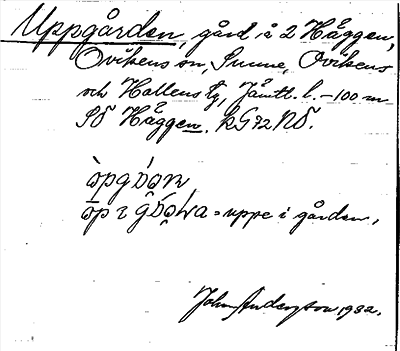 Uppgården, gård i å 2 Häggen,
Ovikens sn, Sunne, Ovikens
och Hallens tg, Jämtl. l. – 100 m
SÖ Häggen. RG72NÖ.
òpgɒ́ɒn
= uppe i gården,
John Anderzson 1932.